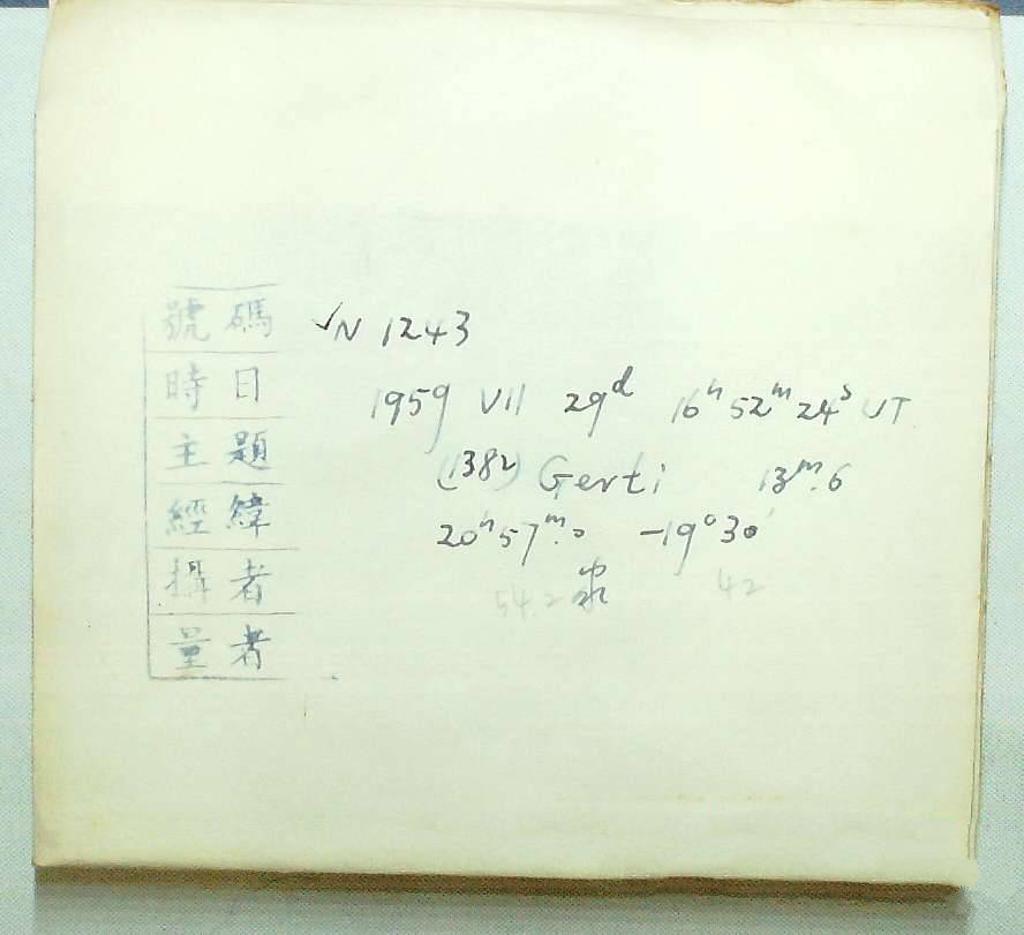 號碼 ✓N 1243
時日 1959 VII 29ᵈ 16ʰ52ᵐ24ˢ UT
主題 (1382) Gerti 13ᵐ.6
經緯 20ʰ57ᵐ.0 -19°30′
攝者 54.2 42
量者